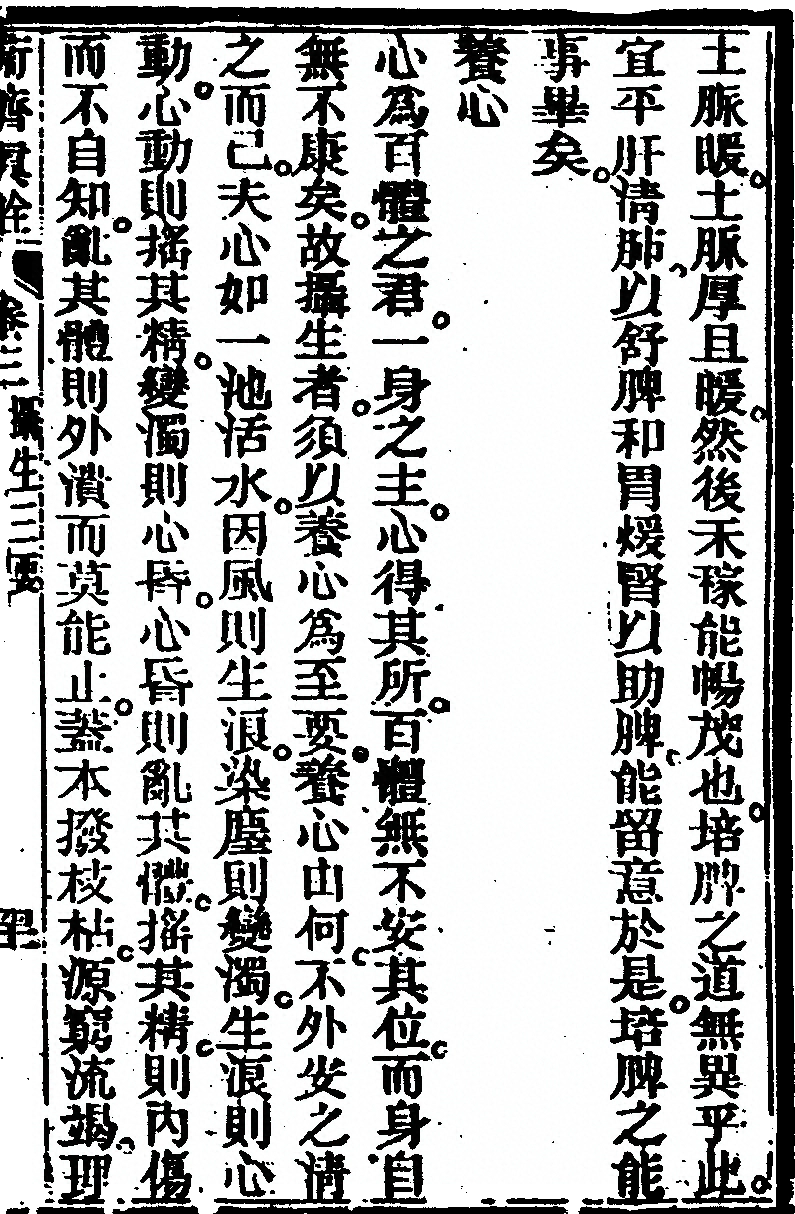 土脈暖土脈厚且暖然後禾稼能暢茂也培脾之道無異乎此
宜平肝清肺以舒脾和胃煖腎以助脾能留意於是培脾之能
事畢矣
養心
心為百體之君一身之主心得其所百體無不安其位而身自
無不康矣故攝生者須以養心為至要養心由何不外安之清
之而已夫心如一池活水因風則生浪染塵則變濁生浪則心
動心動則搖其精變濁則心昏心昏則亂其體搖其精則內傷
而不自知亂其體則外潰而莫能止蓋本撥枝枯源窮流竭理
濟 卷三 攝生三要